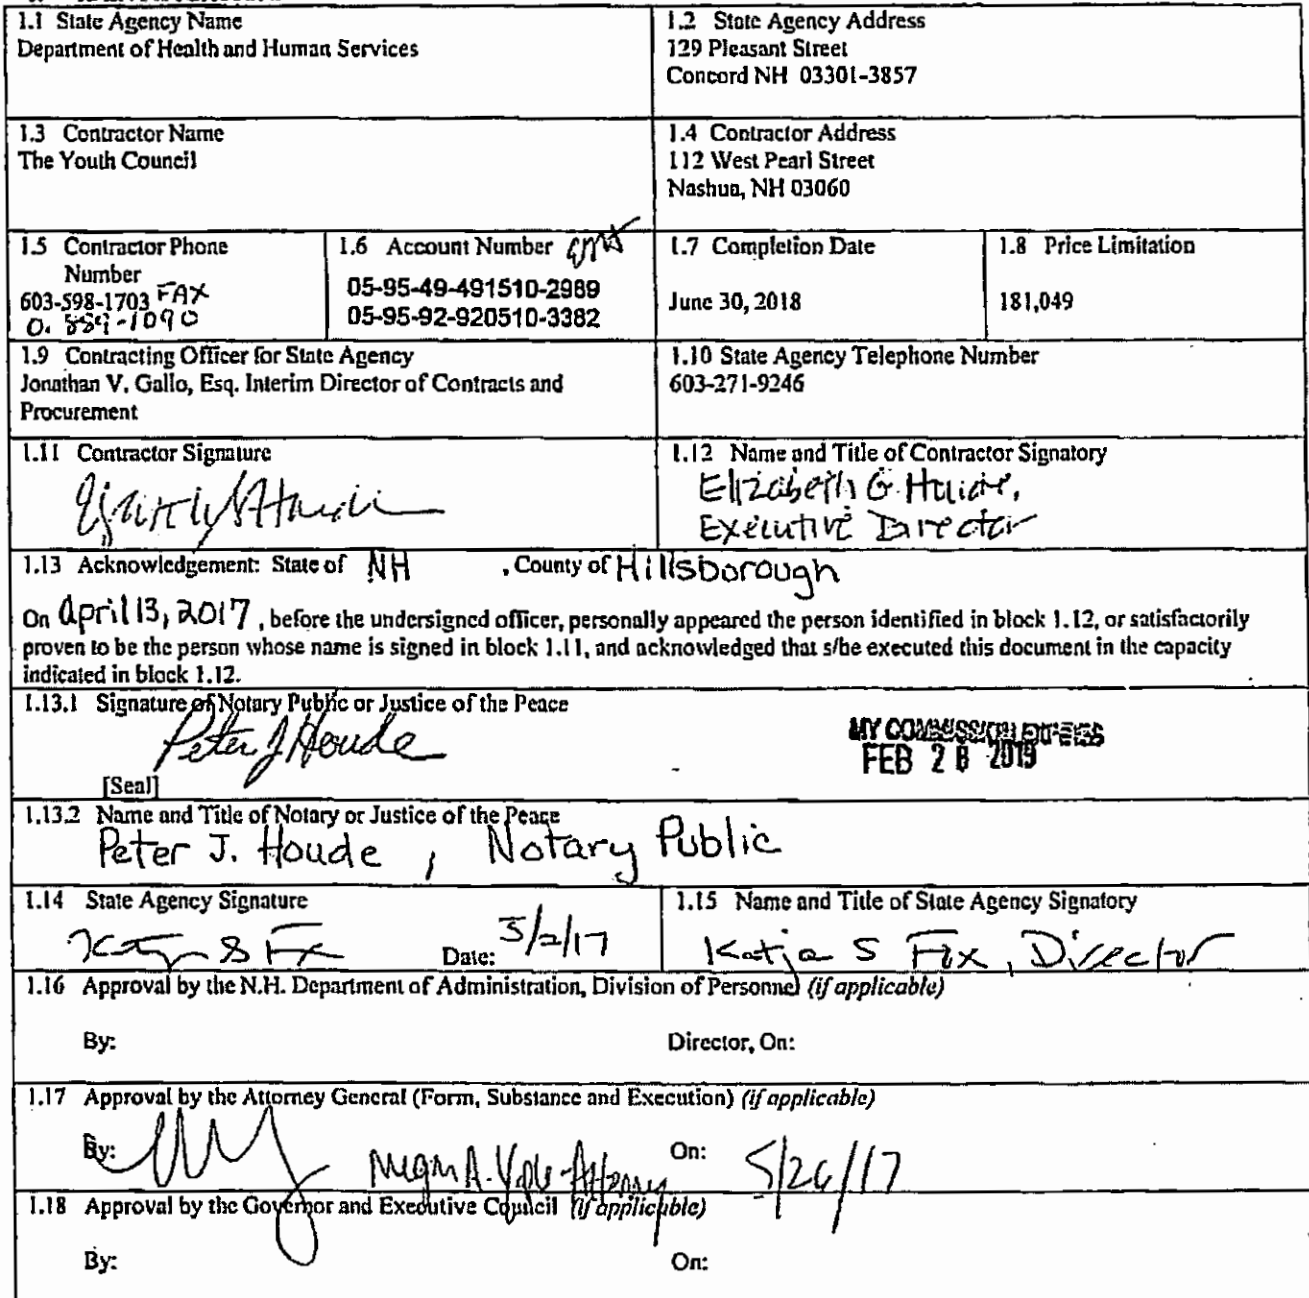 1.1 State Agency Name
Department of Health and Human Services
1.2 State Agency Address
129 Pleasant Street
Concord NH 03301-3857
1.3 Contractor Name
The Youth Council
1.4 Contractor Address
112 West Pearl Street
Nashua, NH 03060
1.5 Contractor Phone
Number
603-598-1703 FAX
O. 889-1090
1.6 Account Number
05-95-49-491510-2989
05-95-92-920510-3382
1.7 Completion Date
June 30, 2018
1.8 Price Limitation
181,049
1.9 Contracting Officer for State Agency
Jonathan V. Gallo, Esq. Interim Director of Contracts and
Procurement
1.10 State Agency Telephone Number
603-271-9246
1.11 Contractor Signature
1.12 Name and Title of Contractor Signatory
Elizabeth G. Houde,
Executive Director
1.13 Acknowledgement: State of NH , County of Hillsborough
On April 13, 2017 , before the undersigned officer, personally appeared the person identified in block 1.12, or satisfactorily
proven to be the person whose name is signed in block 1.11, and acknowledged that s/he executed this document in the capacity
indicated in block 1.12.
1.13.1 Signature of Notary Public or Justice of the Peace
Peter J Houde
MY COMMISSION EXPIRES
FEB 28 2019
[Seal]
1.13.2 Name and Title of Notary or Justice of the Peace
Peter J. Houde , Notary Public
1.14 State Agency Signature
Date: 5/2/17
1.15 Name and Title of State Agency Signatory
Katja S Fox, Director
1.16 Approval by the N.H. Department of Administration, Division of Personnel (if applicable)
By:
Director, On:
1.17 Approval by the Attorney General (Form, Substance and Execution) (if applicable)
By: Megan A. Yaple - Attorney On: 5/26/17
1.18 Approval by the Governor and Executive Council (if applicable)
By:
On: